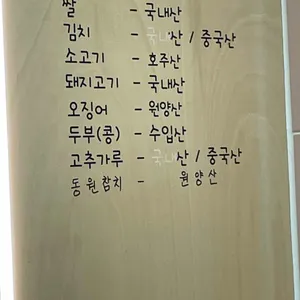 쌀 - 국내산
김치 - 국내산 / 중국산
소고기 - 호주산
돼지고기 - 국내산
오징어 - 원양산
두부(콩) - 수입산
고추가루 - 국내산 / 중국산
동원참치 - 원양산